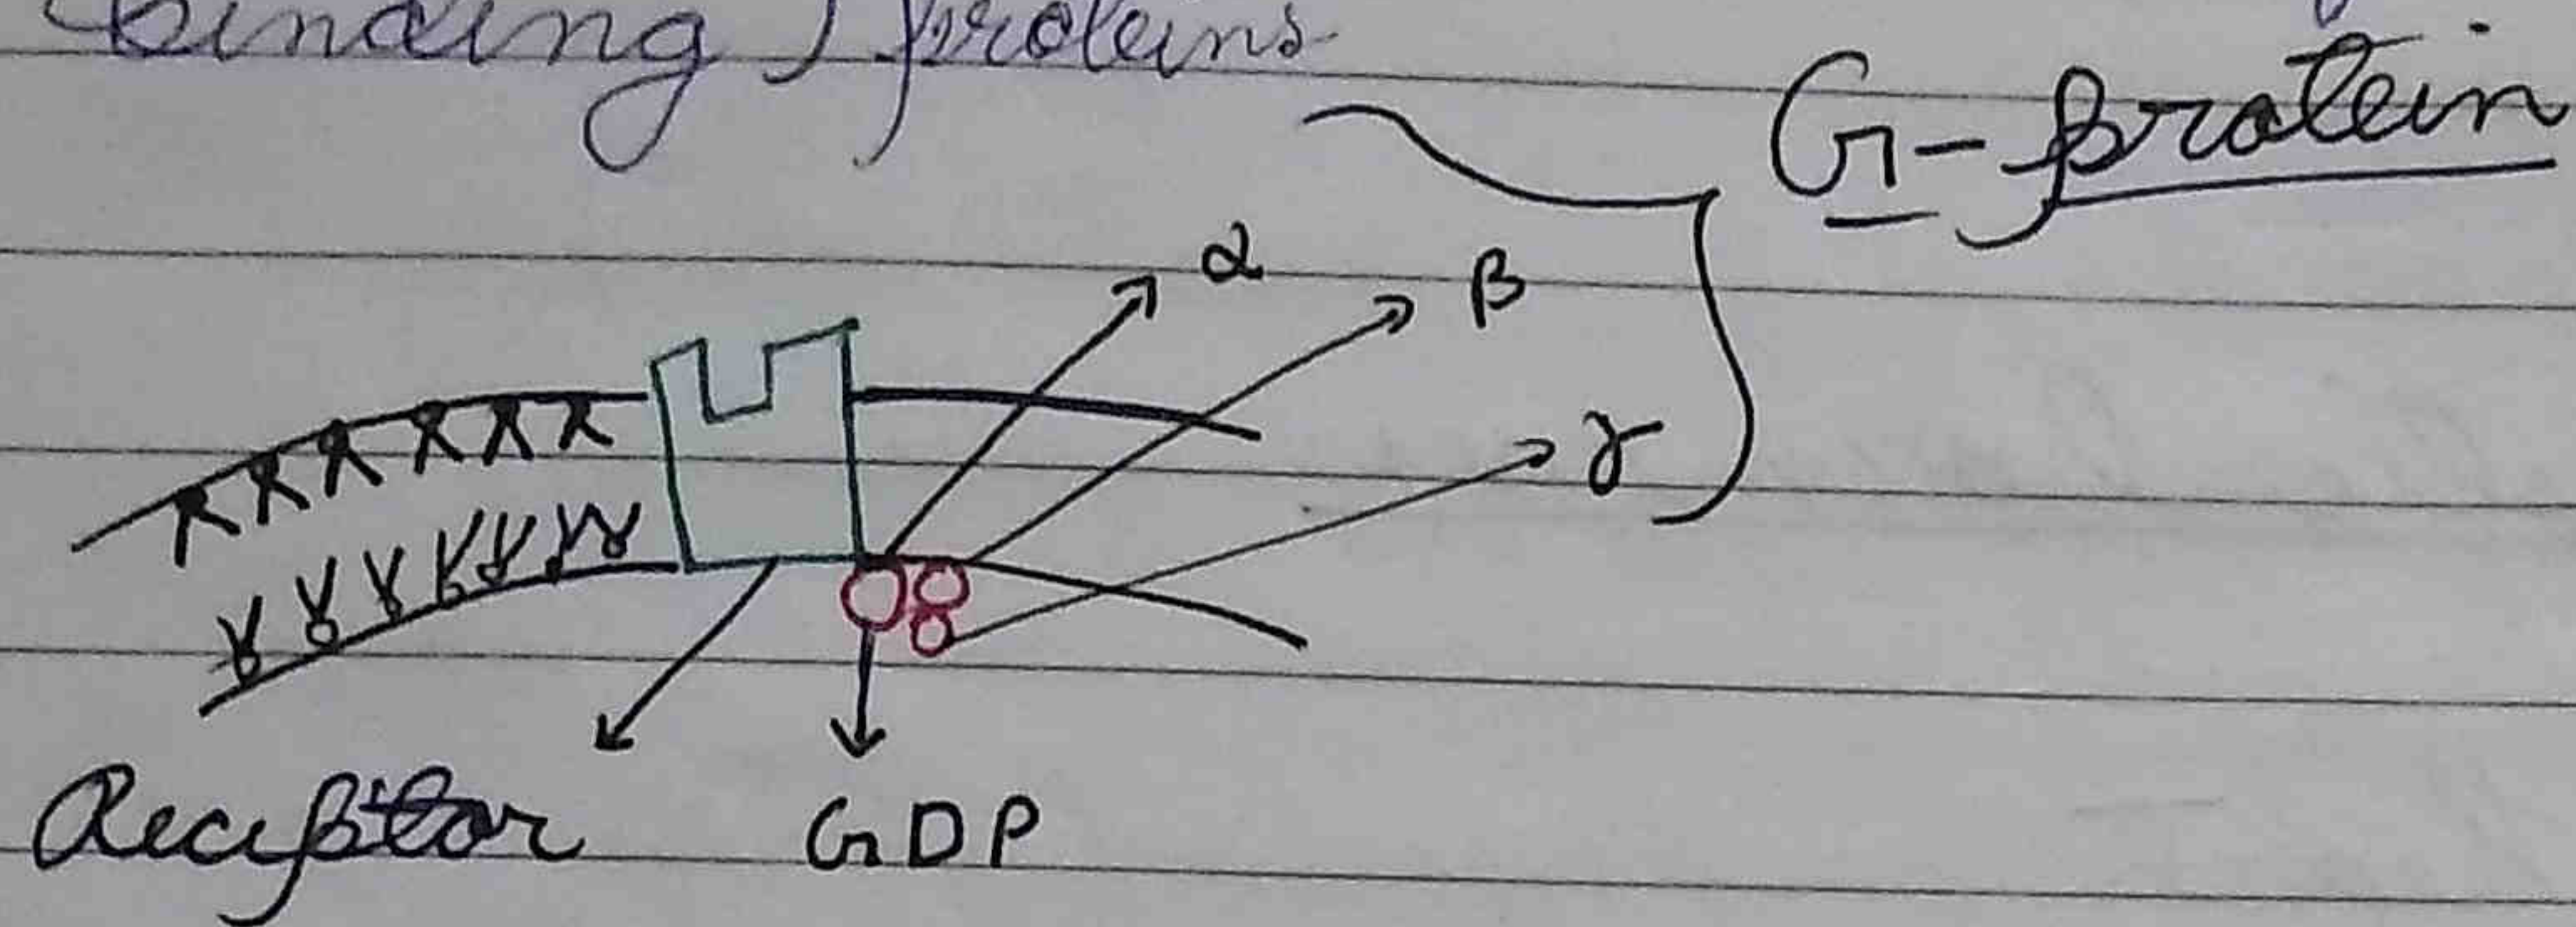 binding) proteins
G-protein
α
β
γ
Receptor
GDP